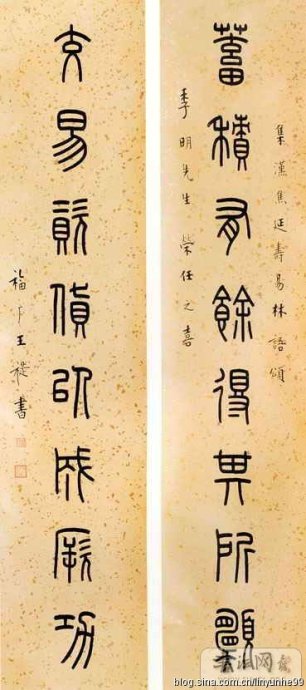 蓄積有餘得其所願
集漢焦延壽易林語頌
季明先生榮任之嘉
交易資貨以成厥功
福厂王禔書
blog.sina.com.cn/linyunhe99